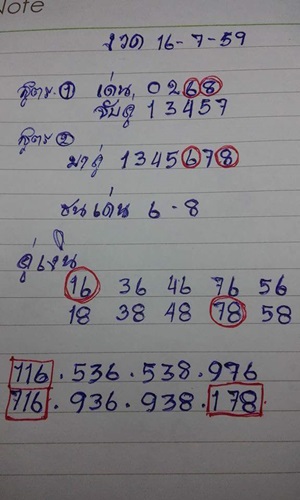 Note
งวด 16-7-59
สูตร ① เด่น 0 2 6 8
จับคู่ 1 3 4 5 7
สูตร ②
มาคู่ 1 3 4 5 6 7 8
ชนเด่น 6 - 8
คู่เงิน
16 36 46 76 56
18 38 48 78 58
116 . 536 . 538 . 976
716 . 936 . 938 . 178